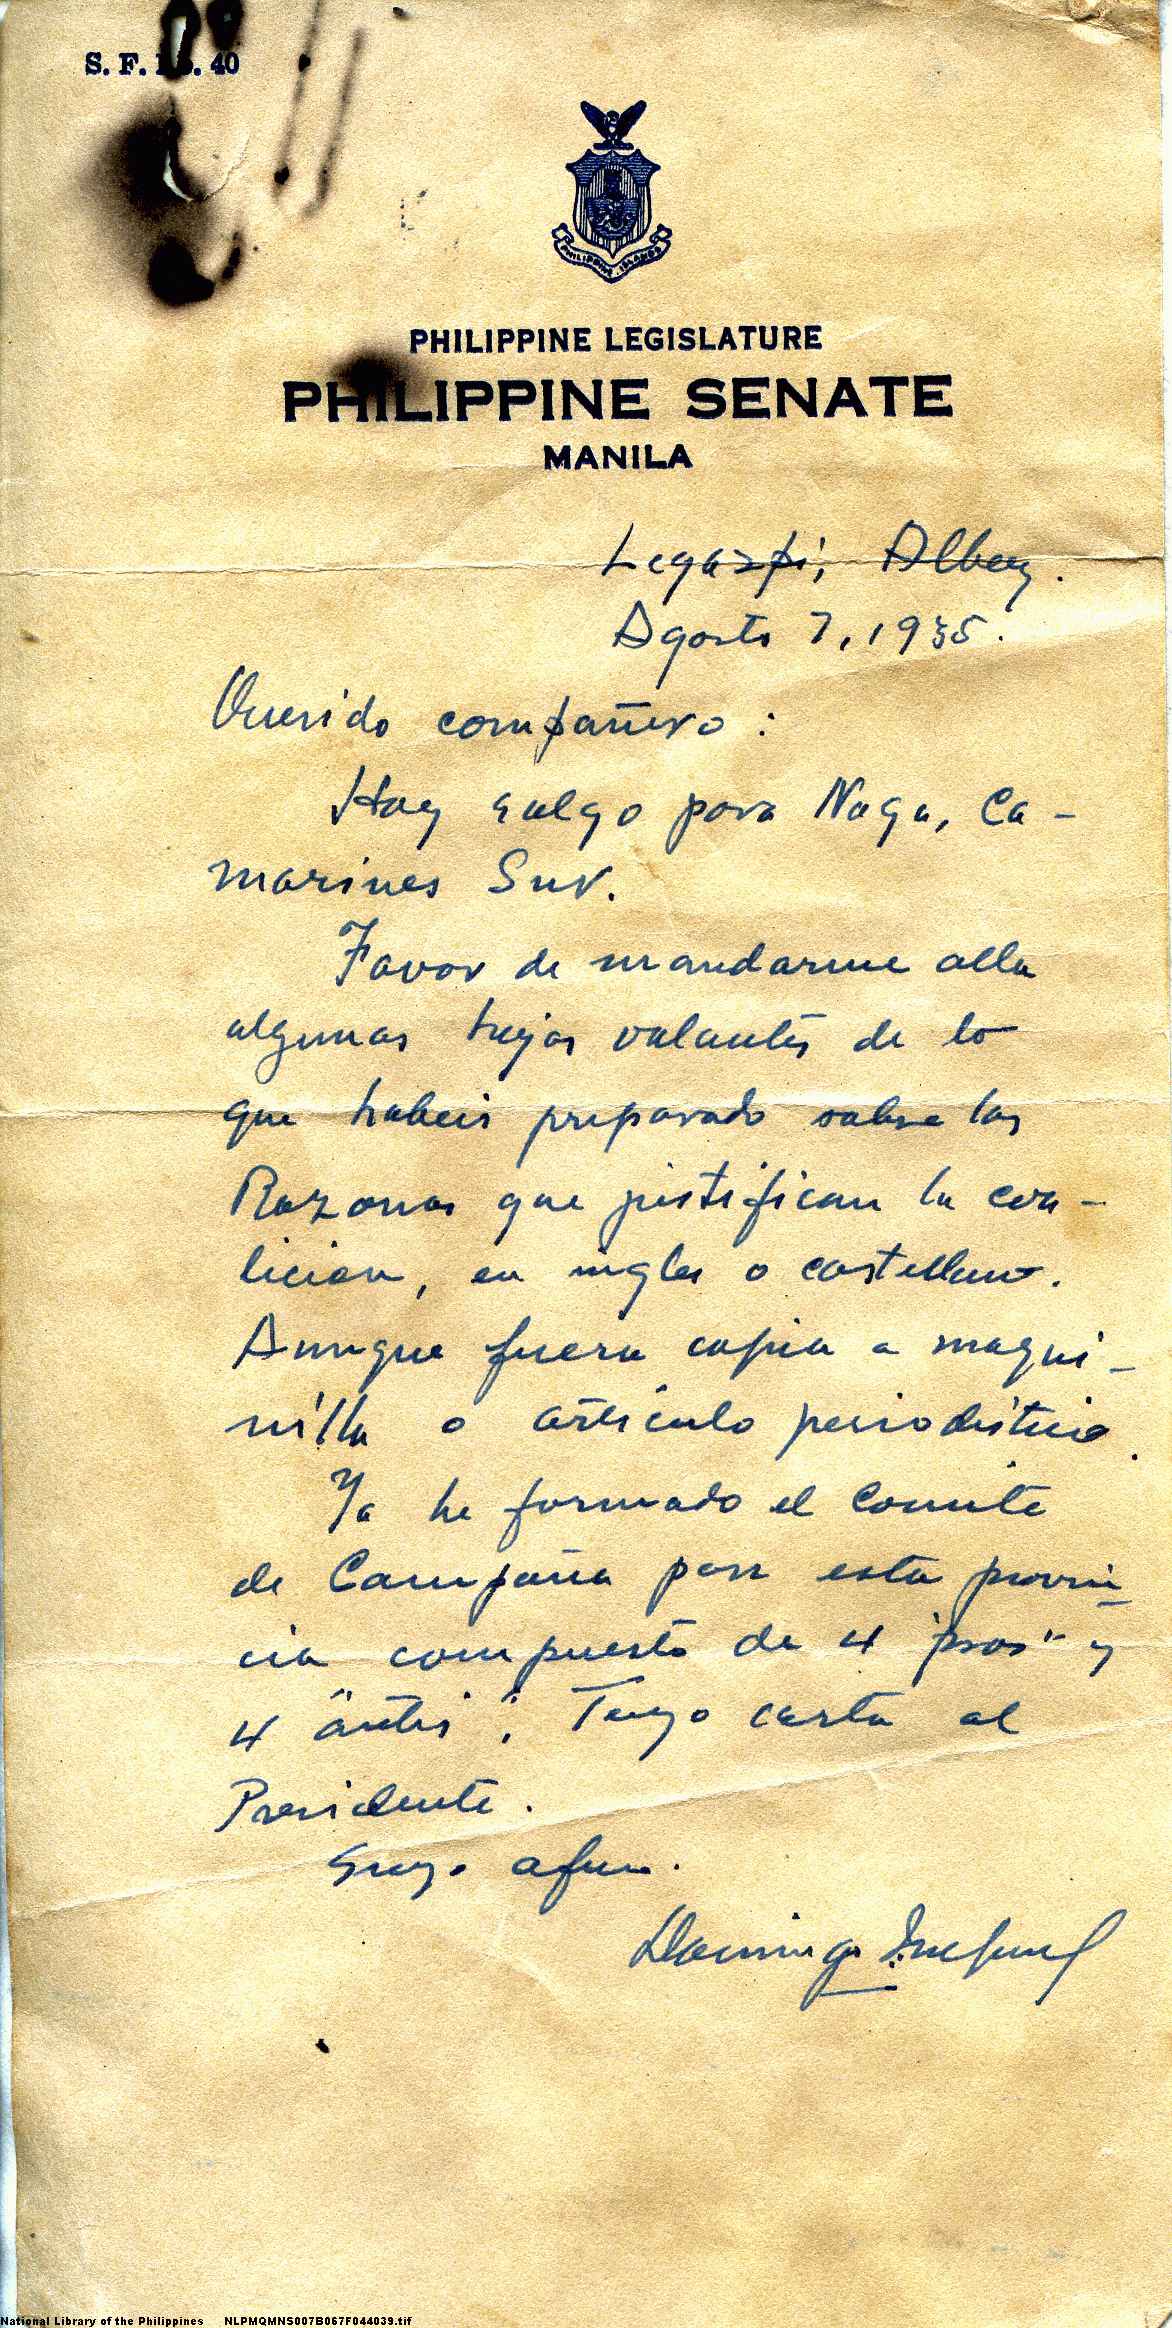 S. F. No. 40
PHILIPPINE ISLANDS
PHILIPPINE LEGISLATURE
PHILIPPINE SENATE
MANILA
Legazpi, Albay.
Agosto 7, 1935.
Querido compañero:
Hoy salgo para Naga, Ca-
marines Sur.
Favor de mandarme alla
algunas hojas volantes de lo
que habeis preparado sobre las
Razones que justifican la coa-
licion, en ingles o castellano.
Aunque fuera copia a maqui-
nilla o articulo periodistico.
Ya he formado el Comite
de Campaña para esta provin-
cia compuesto de 4 "pros" y
4 "antis". Tengo carta al
Presidente.
Suyo afmo.
Domingo Imperial
National Library of the Philippines NLPMQMNS007B067F044039.tif